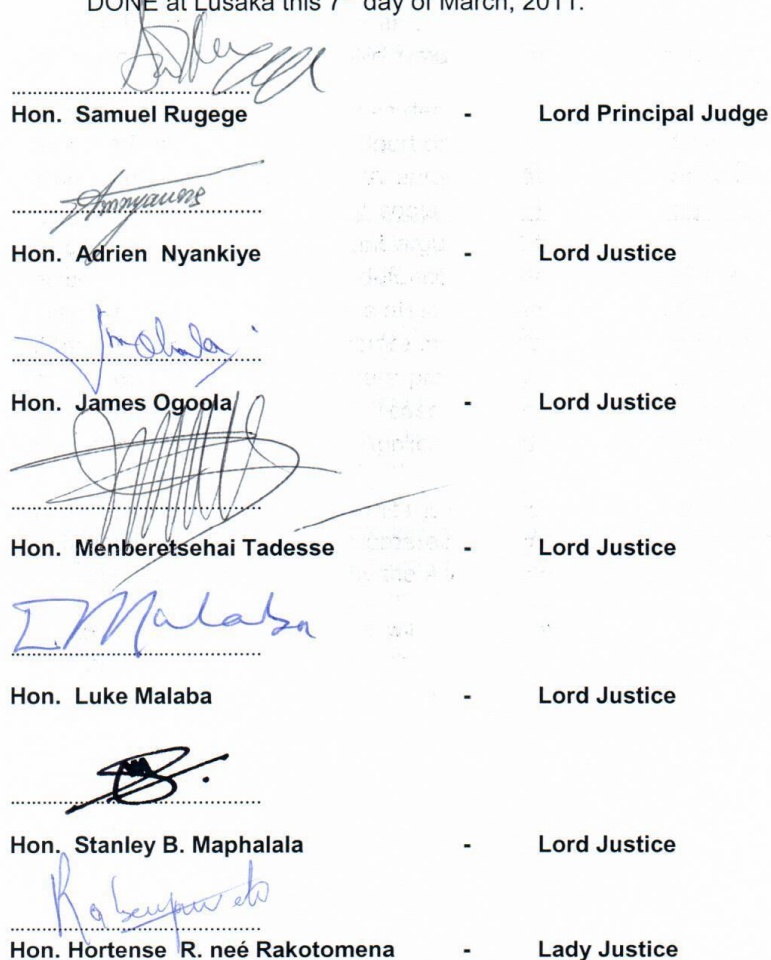 DONE at Lusaka this 7 day of March, 2011.
Hon. Samuel Rugege - Lord Principal Judge
Hon. Adrien Nyankiye - Lord Justice
Hon. James Ogoola - Lord Justice
Hon. Menberetsehai Tadesse - Lord Justice
Malaba
Hon. Luke Malaba - Lord Justice
Hon. Stanley B. Maphalala - Lord Justice
Hon. Hortense R. neé Rakotomena - Lady Justice